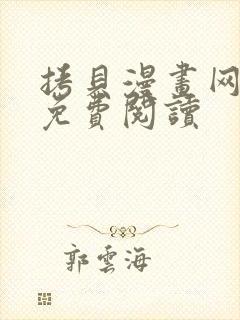 拷貝漫畫网
免費閱讀
郭雲海